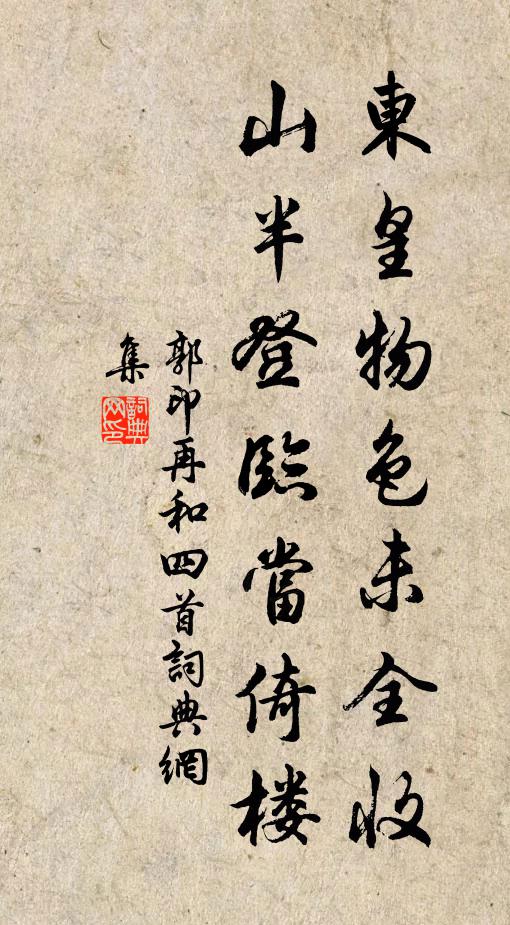 東皇物色未全收
山半登臨當倚楼
郭印再和四首詞典網
集
詞典網印